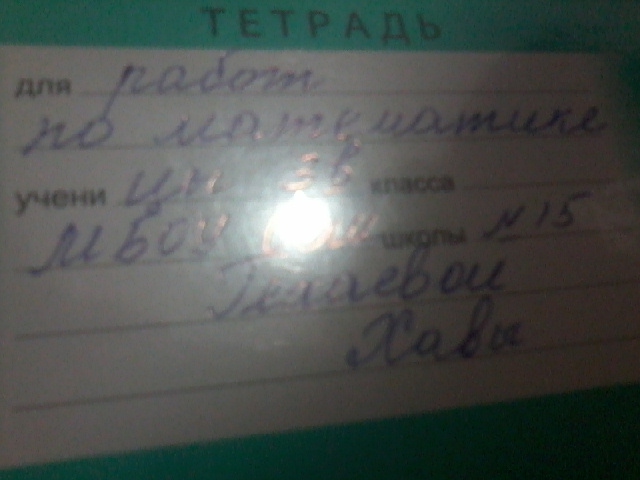 ТЕТРАДЬ
для работ
по математике
учени цы 3в класса
МБОУ школы №15
Хавы